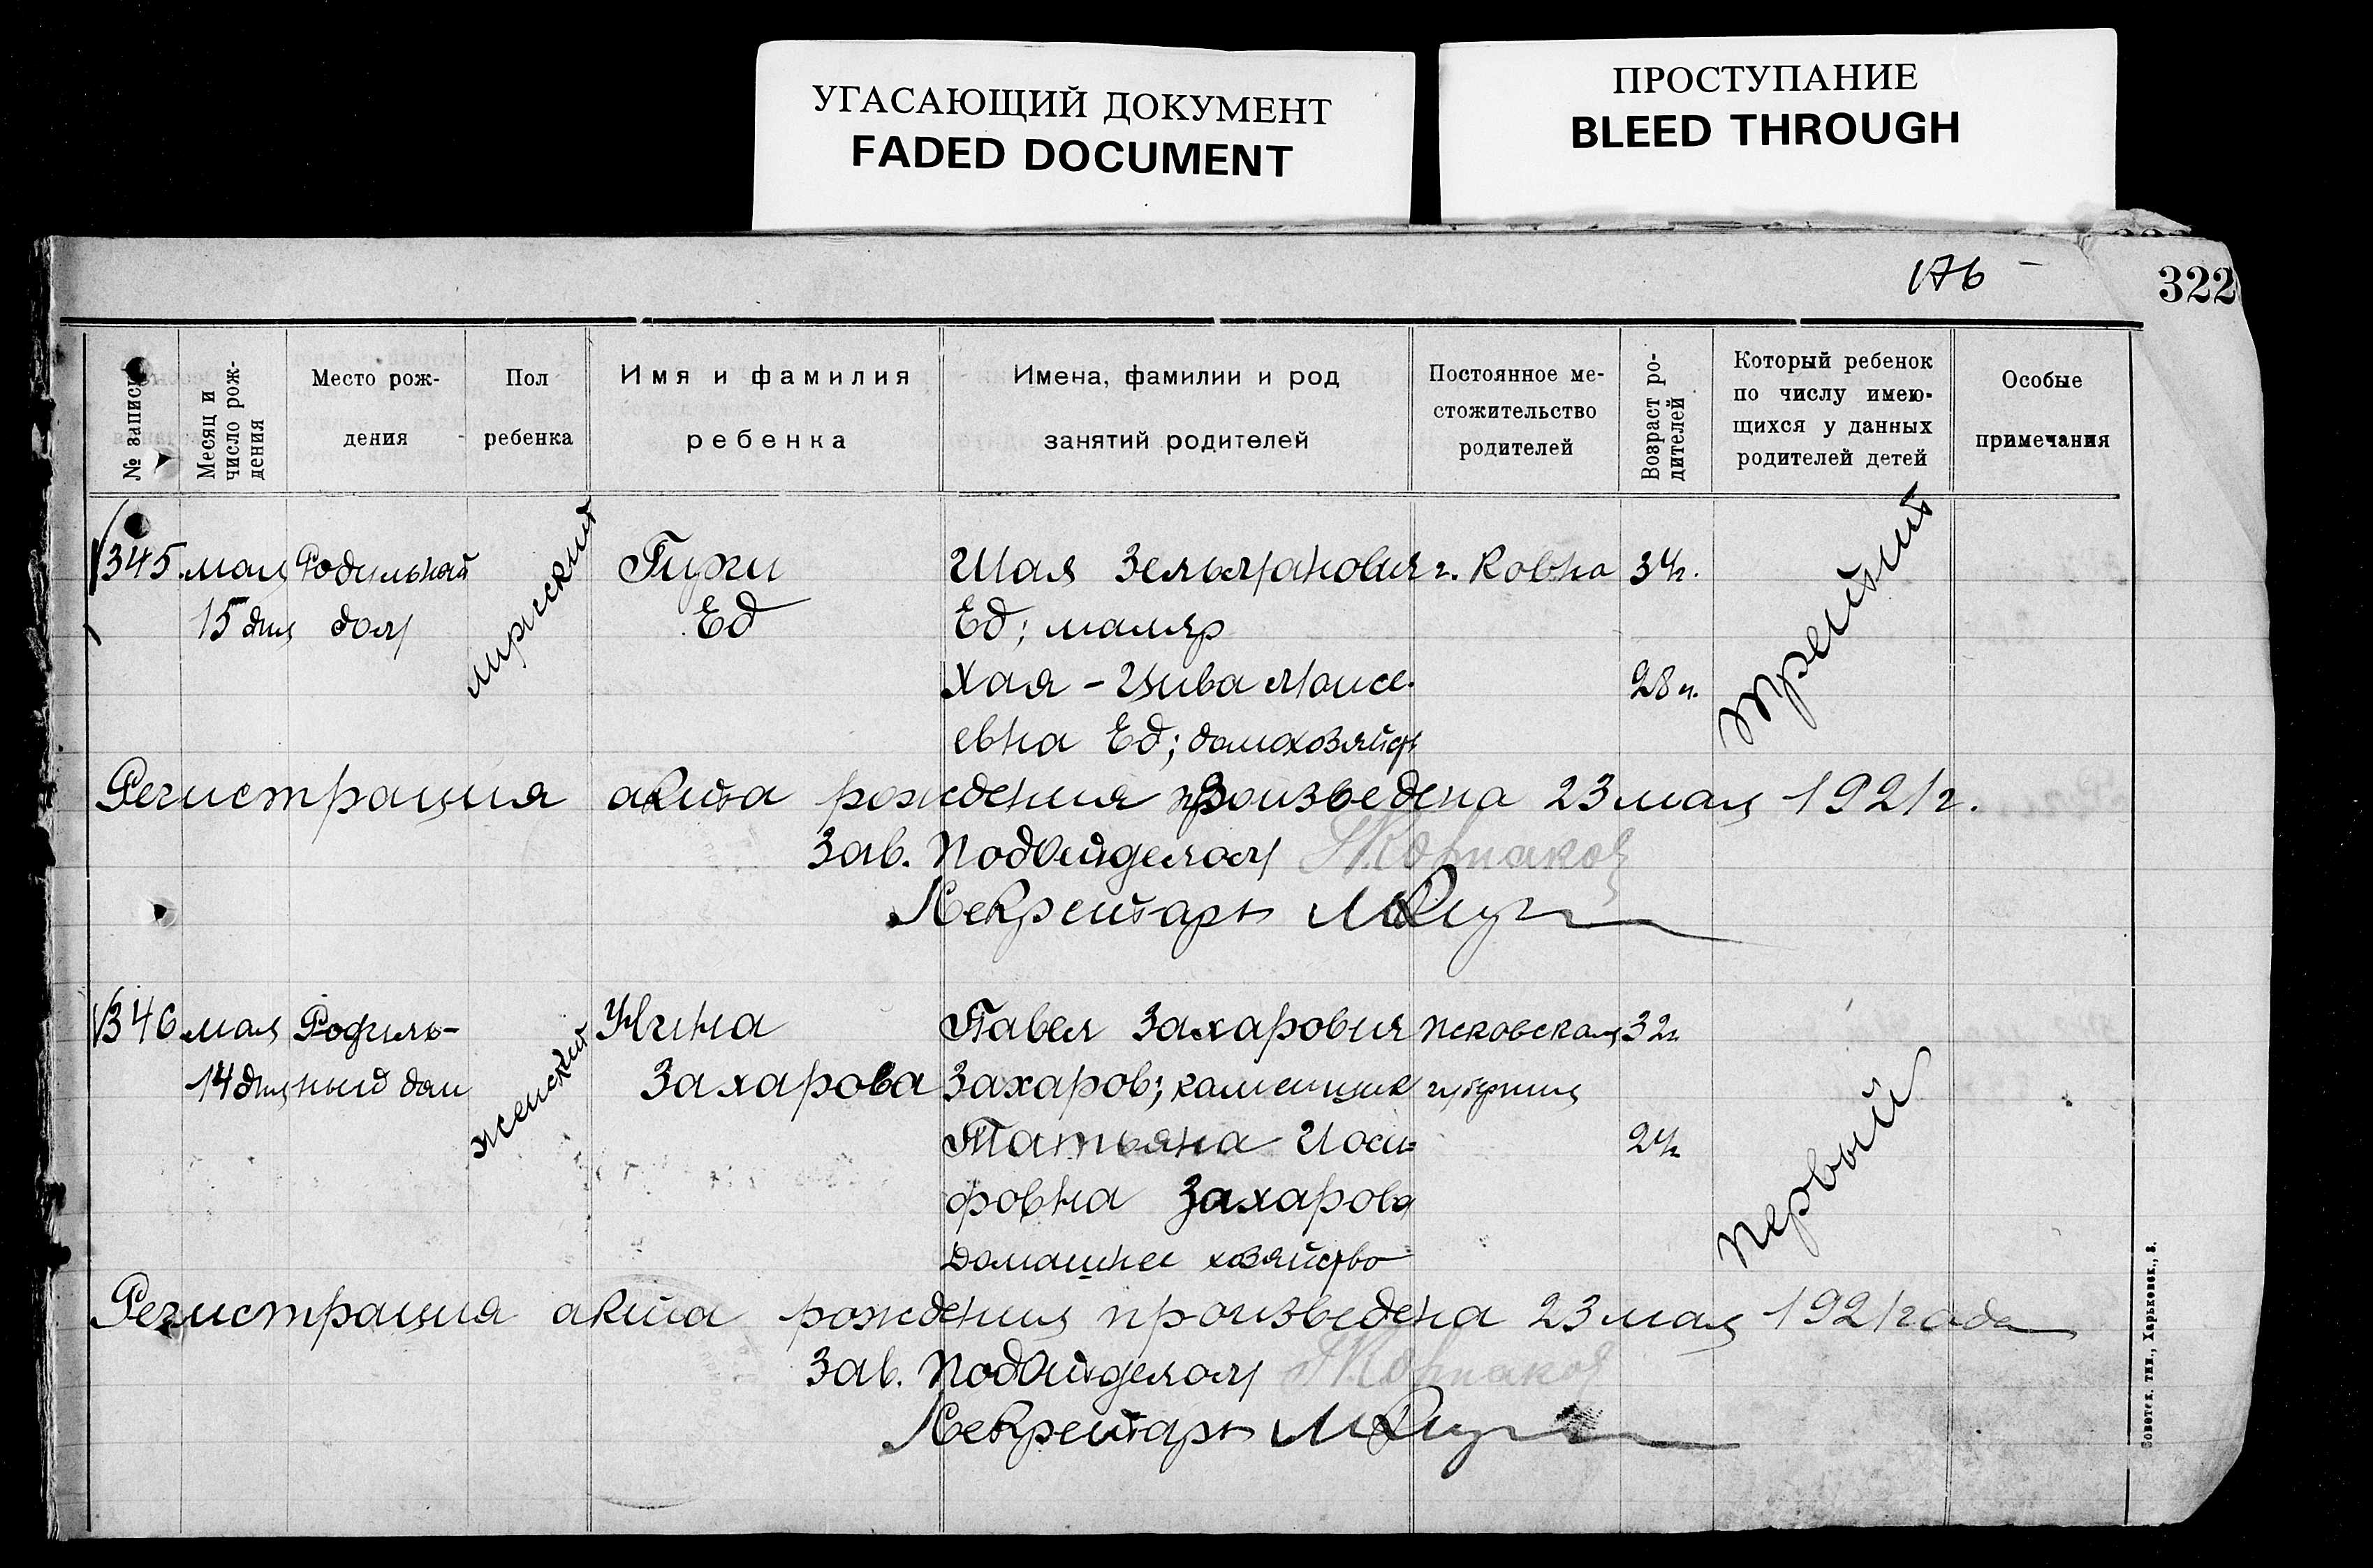 УГАСАЮЩИЙ ДОКУМЕНТ
FADED DOCUMENT
ПРОСТУПАНИЕ
BLEED THROUGH
176
322
№ записи
Месяц и число рождения
Место рождения
Пол ребенка
Имя и фамилия ребенка
Имена, фамилии и род занятий родителей
Постоянное местожительство родителей
Возраст родителей
Который ребенок по числу имеющихся у данных родителей детей
Особые примечания
345 мая Родильный мужской Шая Зельманович г. Ковна 34г. третий
15 дня дом Ед Ед; маляр
Хая - Цива Моисе- 28 л.
евна Ед; домохозяйст
Регистрация акта рождения произведена 23 мая 1921 г.
Зав. Подотделом
Секретарь
346 мая Родиль- женский Нина Павел Захарович Псковская 32г. первый
14 дня ный дом Захарова Захаров; каменщик губерния
Татьяна Иоси- 24г.
фовна Захарова
домашнее хозяйство
Регистрация акта рождения произведена 23 мая 1921 года
Зав. Подотделом
Секретарь